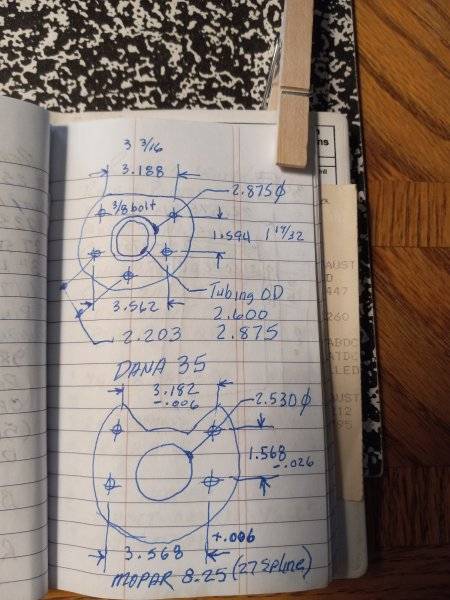 3 3/16
3.188
2.875⌀
3/8 bolt
1.594 1 19/32
Tubing OD
3.562 2.600
2.203 2.875
DANA 35
3.182
-.006
2.530⌀
1.568
-.026
+.006
3.568
MOPAR 8.25 (27 Spline)
AUST
D
447
260
ABDC
ATDC
LED
AUST
12
95